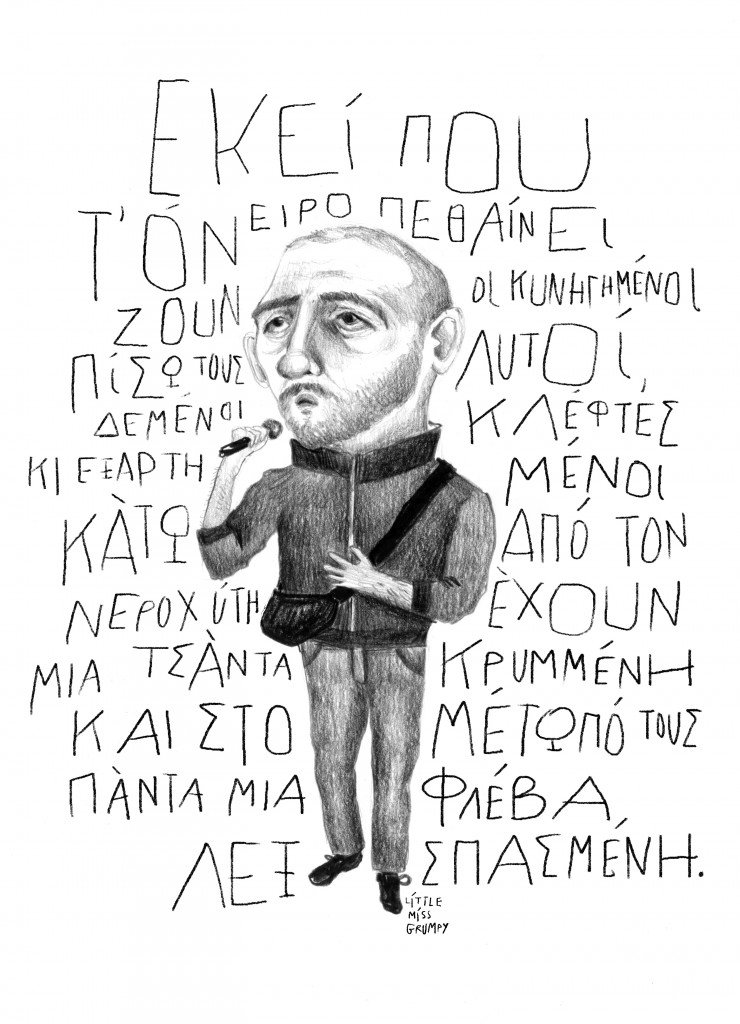 ΕΚΕΊ ΠΟΥ
Τ'ΌΝΕΙΡΟ ΠΕΘΑΊΝΕΙ
ΖΟΥΝ ΟΙ ΚΥΝΗΓΗΜΈΝΟΙ
ΠΊΣΩ ΤΟΥΣ ΛΥΤΟΊ,
ΔΕΜΈΝΟΙ ΚΛΈΦΤΕΣ
ΚΙ ΕΞΑΡΤΗΜΈΝΟΙ
ΚᾺΤΩ ΑΠΌ ΤΟΝ
ΝΕΡΟΧΎΤΗ ῈΧΟΥΝ
ΜΙΑ ΤΣᾺΝΤΑ ΚΡΥΜΜΈΝΗ
ΚΑΙ ΣΤΟ ΜΈΤΩΠΌ ΤΟΥΣ
ΠᾺΝΤΑ ΜΙΑ ΦΛΈΒΑ
ΣΠΑΣΜΈΝΗ.
ΛΕΞ
LITTLE
MISS
GRUMPY